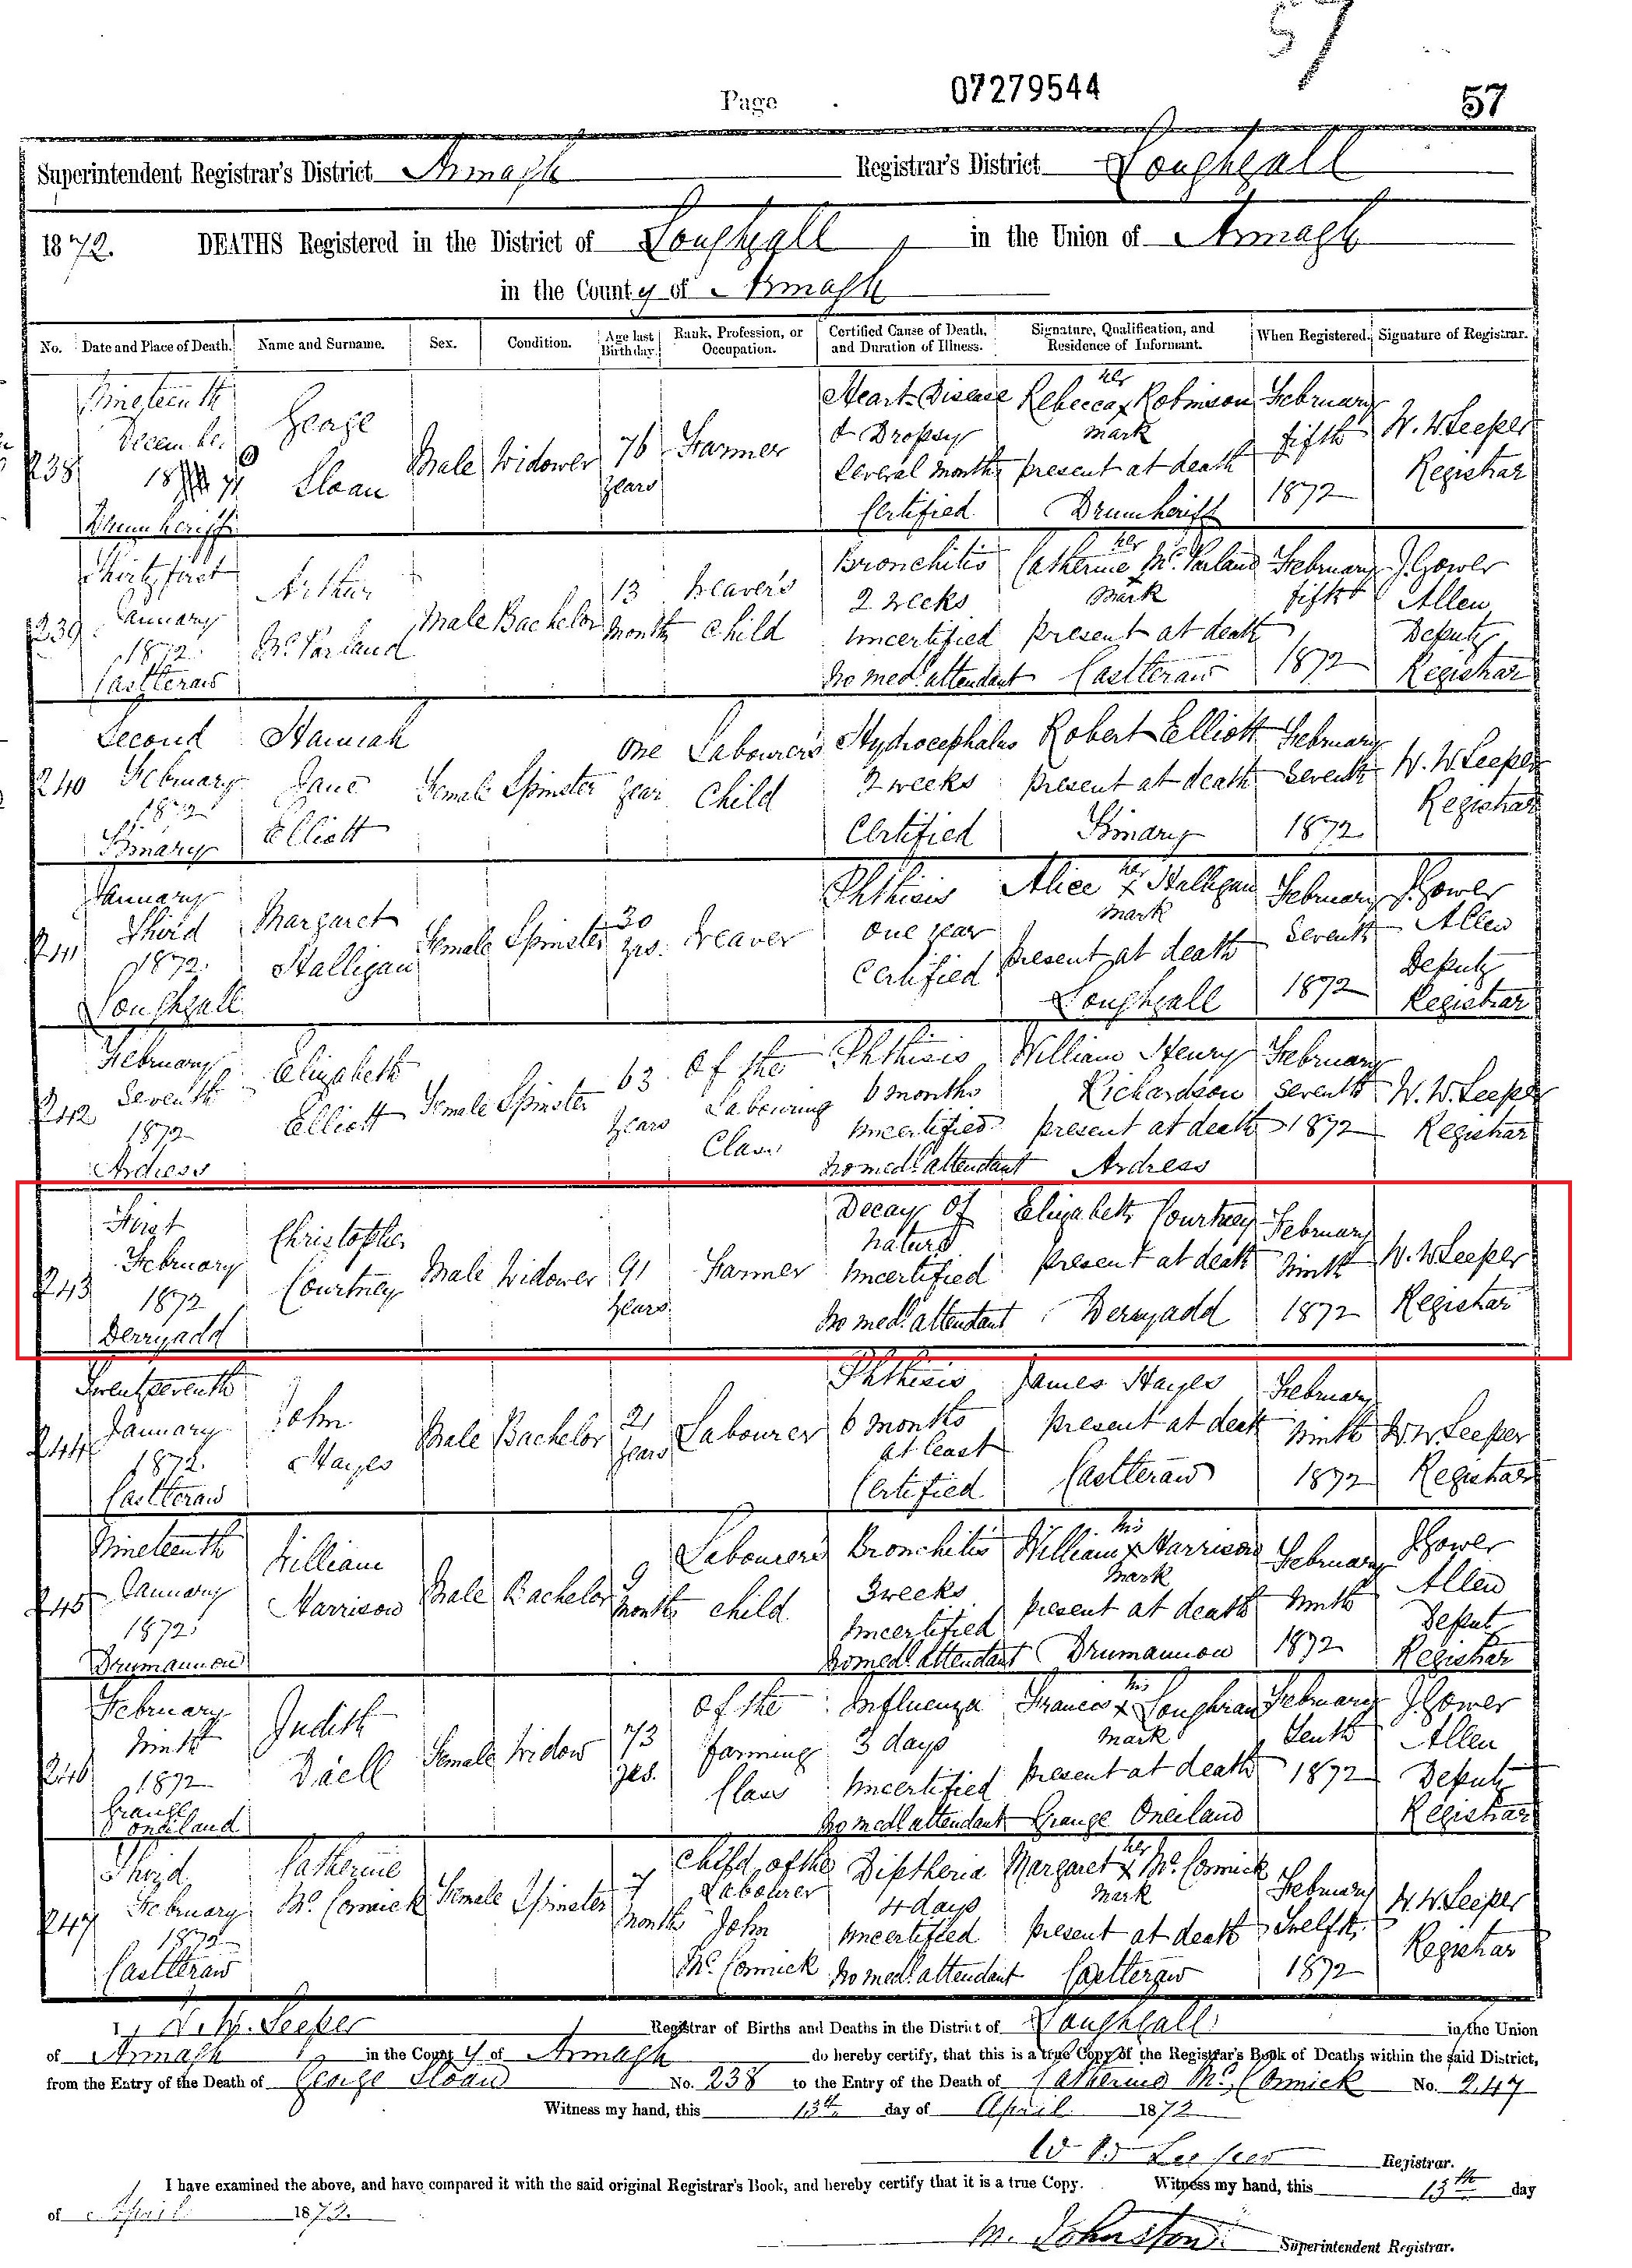 57
Page
07279544
57
Superintendent Registrar's District Armagh
Registrar's District Loughgall
1872. DEATHS Registered in the District of Loughgall, in the Union of Armagh
in the County of Armagh
No.
Date and Place of Death.
Name and Surname.
Sex.
Condition.
Age last Birthday.
Rank, Profession, or Occupation.
Certified Cause of Death, and Duration of Illness.
Signature, Qualification, and Residence of Informant.
When Registered.
Signature of Registrar.
238
Nineteenth
December
71
Drumheriff
George
Sloan
Male
Widower
76
years
Farmer
Heart Disease
& Dropsy
Several months
Certified
Rebecca x Robinson
her
mark
present at death
Drumheriff
February
fifth
1872
W. W. Leeper
Registrar
239
Thirty first
January
1872
Castleraw
Arthur
McParland
Male
Bachelor
13
Months
Weaver's
child
Bronchitis
2 weeks
Uncertified
No medl. attendant
Catherine McParland
her
Mark
present at death
Castleraw
February
fifth
1872
J. Gower
Allen
Deputy
Registrar
240
Second
February
1872
Kinary
Hannah
Jane
Elliott
Female
Spinster
One
year
Labourer's
Child
Hydrocephalus
2 weeks
Certified
Robert Elliott
present at death
Kinary
February
Seventh
1872
W. W. Leeper
Registrar
241
January
Third
1872.
Loughgall
Margaret
Halligan
Female
Spinster
30
yrs.
Weaver
Phthisis
One year
Certified
Alice x Halligan
her
mark
present at death
Loughgall
February
Seventh
1872
J. Gower
Allen
Deputy
Registrar
242
February
Seventh
1872
Ardress
Elizabeth
Elliott
Female
Spinster
63
years
Of the
Labouring
Class
Phthisis
6 months
Uncertified
No medl. attendant
William Henry
Richardson
present at death
Ardress
February
Seventh
1872
W. W. Leeper
Registrar
243
First
February
1872
Derryadd
Christopher
Courtney
Male
Widower
91
years
Farmer
Decay of
Nature
Uncertified
No medl. attendant
Elizabeth Courtney
present at death
Derryadd
February
Ninth
1872
W. W. Leeper
Registrar
244
Twenty seventh
January
1872.
Castleraw
John
Hayes
Male
Bachelor
21
years
Labourer
Phthisis
6 months
at least
Certified
James Hayes
present at death
Castleraw
February
Ninth
1872
W. W. Leeper
Registrar
245
Nineteenth
January
1872
Drumannon
William
Harrison
Male
Bachelor
9
Months
Labourer's
child
Bronchitis
3 weeks
Uncertified
No medl. attendant
William x Harrison
his
Mark
present at death
Drumannon
February
Ninth
1872
J. Gower
Allen
Deputy
Registrar
246
February
Ninth
1872
Grange
Oneiland
Judith
Female
Widow
73
yrs.
Of the
farming
Class
Influenza
3 days
Uncertified
No medl. attendant
Francis x Loughran
his
Mark
present at death
Grange Oneiland
February
Tenth
1872
J. Gower
Allen
Deputy
Registrar
247
Third
February
1872
Castleraw
Catherine
McCormick
Female
Spinster
7
Months
Child of the
Labourer
John
McCormick
Diptheria
4 days
Uncertified
No medl. attendant
Margaret x McCormick
her
Mark
present at death
Castleraw
February
Twelfth
1872
W. W. Leeper
Registrar
I, W. W. Leeper Registrar of Births and Deaths in the District of Loughgall in the Union
of Armagh in the County of Armagh do hereby certify, that this is a true Copy of the Registrar's Book of Deaths within the said District,
from the Entry of the Death of George Sloan No. 238 to the Entry of the Death of Catherine McCormick No. 247
Witness my hand, this 13th day of April 1872
W W Leeper Registrar.
I have examined the above, and have compared it with the said original Registrar's Book, and hereby certify that it is a true Copy. Witness my hand, this 13th day
of April 1872.
M. Johnston Superintendent Registrar.